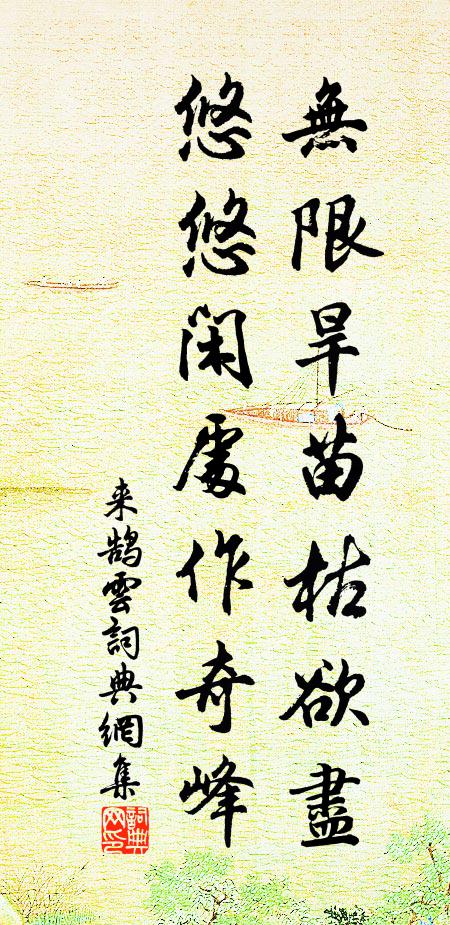 無限旱苗枯欲盡
悠悠閑處作奇峰
来鵠雲詞典網集
詞典网印